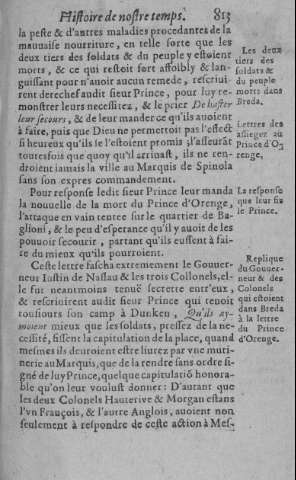 Histoire de nostre temps. 813
la peste & d'autres maladies procedantes de la
mauuaise nourriture, en telle sorte que les
deux tiers des soldats & du peuple y estoient
morts, & ce qui restoit fort affoibly & lan-
guissant pour n'auoir aucun remede, rescriui-
rent derechef audit sieur Prince, pour luy re-
monstrer leurs necessitez, & le prier De haster
leur secours, & de leur mander ce qu'ils auoient
à faire, puis que Dieu ne permettoit pas l'effect
si heureux qu'ils l'estoient promis; l'asseurãt
toutesfois que quoy qu'il arriuast, ils ne ren-
droient iamais la ville au Marquis de Spinola
sans son expres commandement.
Les deux
tiers des
soldats &
du peuple
morts dans
Breda.
Lettres des
assiegez au
Prince d'O-
renge,
Pour response ledit sieur Prince leur manda
la nouuelle de la mort du Prince d'Orenge,
l'attaque en vain tentee sur le quartier de Ba-
glioni, & le peu d'esperance qu'il y auoit de les
pouuoir secourir, partant qu'ils eussent à fai-
re du mieux qu'ils pourroient.
La response
que leur fit
le Prince.
Ceste lettre fascha extremement le Gouuer-
neur Iustin de Nassau & les trois Collonels, el-
le fut neantmoins tenuë secrette entr'eux, &
& rescriuirent audit sieur Prince qui tenoit
tousiours son camp à Dunken, Qu'ils ay-
moient mieux que les soldats, pressez de la ne-
cessité, fissent la capitulation de la place, quand
mesmes ils deuroient estre liurez par vne muti-
nerie au Marquis, que de la rendre sans ordre si-
gné de luy Prince, quelque capitulatiõ honora-
ble qu'on leur voulust donner: D'autant que
les deux Colonels Hauteriue & Morgan estans
l'vn François, & l'autre Anglois, auoient non
seulement à respondre de ceste action à Mes-
Replique
du Gouuer-
neur & des
Colonels
qui estoient
dans Breda
à la lettre
du Prince
d'Orenge.